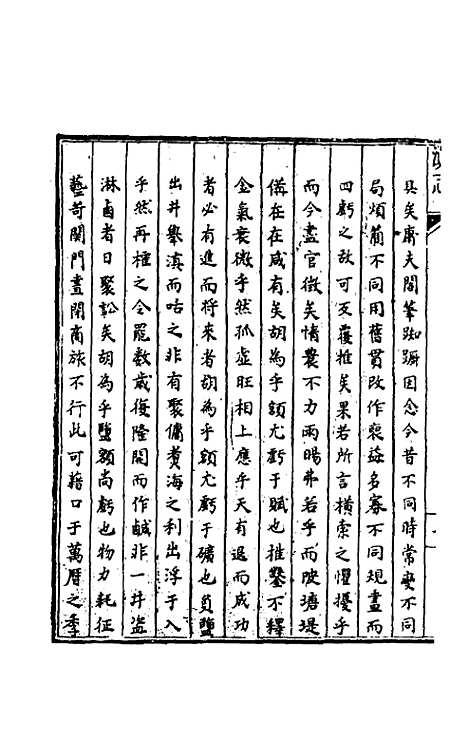 具矣齊夫閣筆踟蹰因念今昔不同時常变不同
局煩簡不同用舊貫改作裒益名寡不同規畫而
四虧之故可反覆推矣果若所言横索之懼擾乎
而今盡官徵矣情農不力雨暘弗若乎而陂塘堤
偹在在咸有矣胡為乎額尤虧于賦也椎鑿不釋
金氣衰微乎然孤虛旺相上應乎天有退而成功
者必有進而将來者胡為乎額尤虧于礦也負鹽
出井舉滇而咕之非有聚傭煑海之利出浮于入
乎然再種之令罷数歲復隆開而作鹹非一井盗
淋鹵者日聚訟矣胡為乎鹽額尚虧也物力耗征
藝苛関門晝閉商旅不行此可藉口于萬曆之季